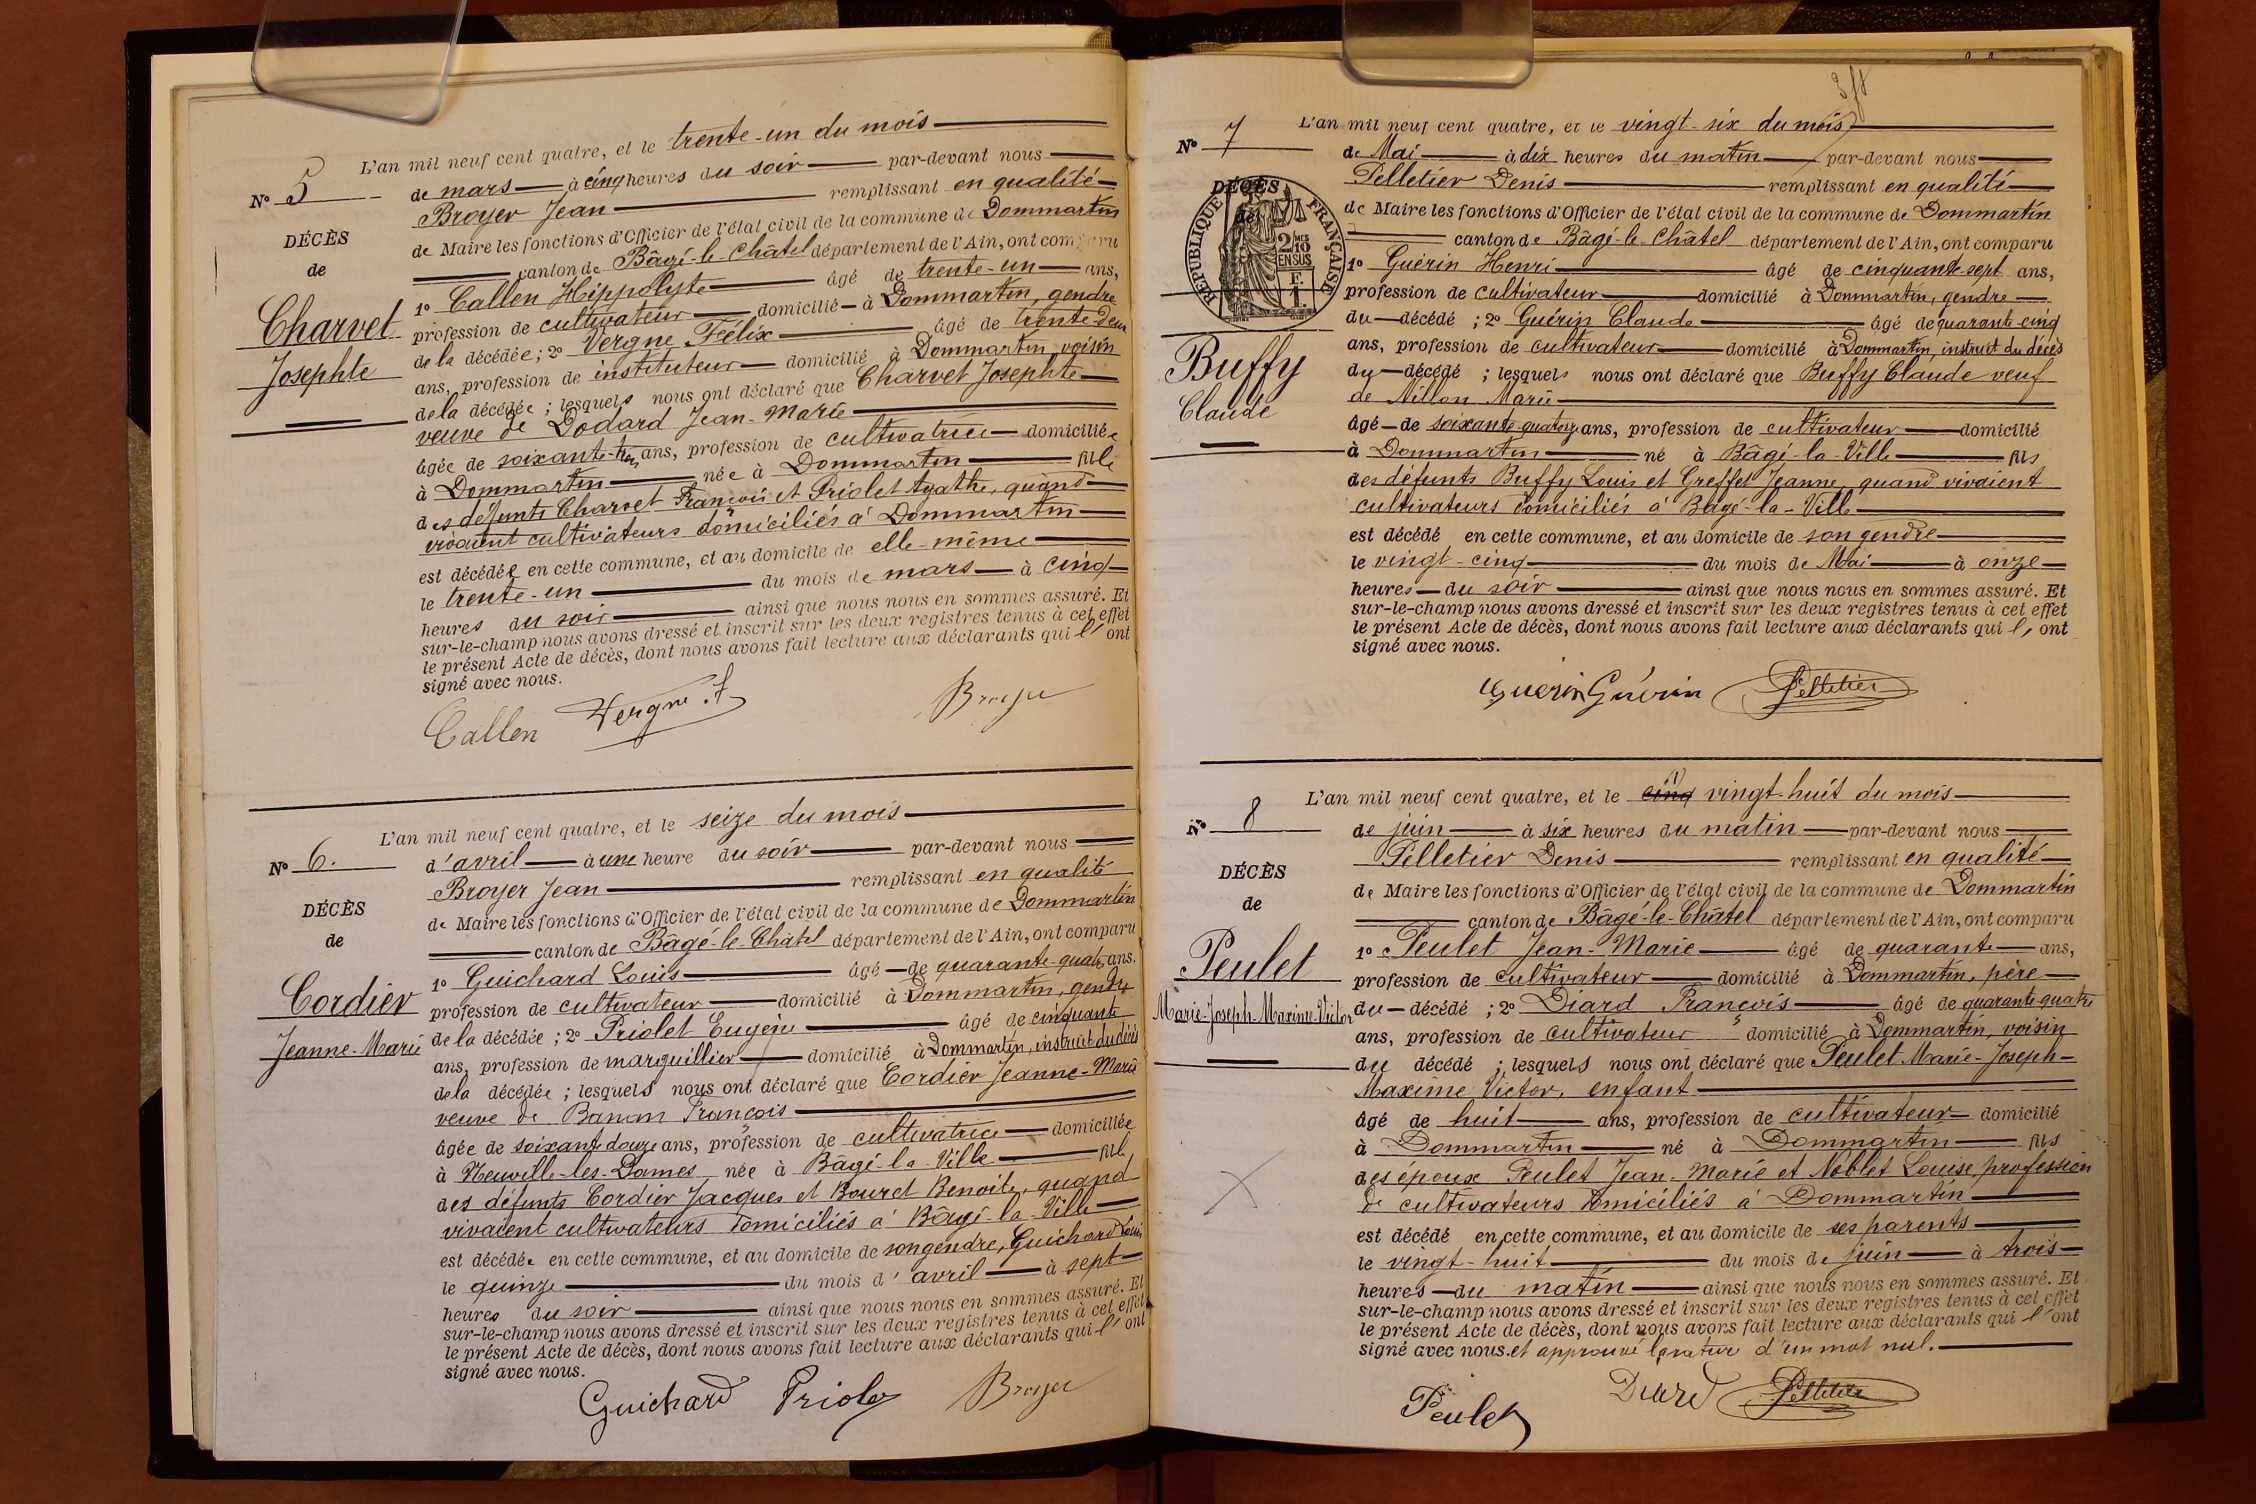 L'an mil neuf cent quatre, et le trente-un du mois
N° 5 de mars à cinq heures du soir par-devant nous
Broyer Jean remplissant en qualité
DÉCÈS
de Maire les fonctions d'Officier de l'état civil de la commune de Dommartin
de
canton de Bâgé-le-Châtel département de l'Ain, ont comparu
1° Callen Hippolyte âgé de trente-un ans,
Charvet
profession de cultivateur domicilié à Dommartin, gendre
de la décédée ; 2° Vergne Félix âgé de trente-deux
Josephte
ans, profession de instituteur domicilié à Dommartin voisin
de la décédée ; lesquels nous ont déclaré que Charvet Josephte
veuve de Dodard Jean-Marie
âgée de soixante-trois ans, profession de cultivatrice domiciliée
à Dommartin née à Dommartin fille
des défunts Charvet François et Priolet Agathe, quand
vivaient cultivateurs domiciliés à Dommartin
est décédée en cette commune, et au domicile de elle-même
le trente-un du mois de mars à cinq
heures du soir ainsi que nous nous en sommes assuré. Et
sur-le-champ nous avons dressé et inscrit sur les deux registres tenus à cet effet
le présent Acte de décès, dont nous avons fait lecture aux déclarants qui l'ont
signé avec nous.
Callen Vergne F Broyer
L'an mil neuf cent quatre, et le seize du mois
N° 6. d'avril à une heure du soir par-devant nous
Broyer Jean remplissant en qualité
DÉCÈS
de Maire les fonctions d'Officier de l'état civil de la commune de Dommartin
de
canton de Bâgé-le-Châtel département de l'Ain, ont comparu
1° Guichard Louis âgé de quarante-quatre ans.
Cordier
profession de cultivateur domicilié à Dommartin, gendre
de la décédée ; 2° Priolet Eugène âgé de cinquante
Jeanne-Marie
ans, profession de marguillier domicilié à Dommartin, instruit du décès
de la décédée ; lesquels nous ont déclaré que Cordier Jeanne-Marie
veuve de Banan François
âgée de soixante douze ans, profession de cultivatrice domiciliée
à Neuville-les-Dames née à Bâgé-la-Ville fille
des défunts Cordier Jacques et Bouret Benoite, quand
vivaient cultivateurs domiciliés à Bâgé-la-Ville
est décédée en cette commune, et au domicile de son gendre, Guichard Louis
le quinze du mois d'avril à sept
heures du soir ainsi que nous nous en sommes assuré. Et
sur-le-champ nous avons dressé et inscrit sur les deux registres tenus à cet effet
le présent Acte de décès, dont nous avons fait lecture aux déclarants qui l'ont
signé avec nous.
Guichard Priolet Broyer
L'an mil neuf cent quatre, et le vingt-six du mois
N° 7
de Mai à dix heures du matin par-devant nous
Pelletier Denis remplissant en qualité
DÉCÈS
de
RÉPUBLIQUE FRANÇAISE
2/10 MES EN SUS
F. 1
de Maire les fonctions d'Officier de l'état civil de la commune de Dommartin
canton de Bâgé-le-Châtel département de l'Ain, ont comparu
1° Guérin Henri âgé de cinquante-sept ans,
profession de cultivateur domicilié à Dommartin, gendre
du décédé ; 2° Guérin Claude âgé de quarante cinq
ans, profession de cultivateur domicilié à Dommartin, instruit du décès
Buffy
du décédé ; lesquels nous ont déclaré que Buffy Claude veuf
Claude
de Nillon Marie
âgé de soixante-quatorze ans, profession de cultivateur domicilié
à Dommartin né à Bâgé-la-Ville fils
des défunts Buffy Louis et Greffet Jeanne, quand vivaient
cultivateurs domiciliés à Bâgé-la-Ville
est décédé en cette commune, et au domicile de son gendre
le vingt-cinq du mois de Mai à onze
heures du soir ainsi que nous nous en sommes assuré. Et
sur-le-champ nous avons dressé et inscrit sur les deux registres tenus à cet effet
le présent Acte de décès, dont nous avons fait lecture aux déclarants qui l'ont
signé avec nous.
Guérin Guérin Pelletier
L'an mil neuf cent quatre, et le cinq vingt-huit du mois
N° 8
de juin à six heures du matin par-devant nous
Pelletier Denis remplissant en qualité
DÉCÈS
de Maire les fonctions d'Officier de l'état civil de la commune de Dommartin
de
canton de Bâgé-le-Châtel département de l'Ain, ont comparu
1° Peulet Jean-Marie âgé de quarante ans,
Peulet
profession de cultivateur domicilié à Dommartin, père
Marie-Joseph-Maxime-Victor
du décédé ; 2° Diard François âgé de quarante quatre
ans, profession de cultivateur domicilié à Dommartin, voisin
du décédé ; lesquels nous ont déclaré que Peulet Marie-Joseph-
Maxime Victor, enfant
âgé de huit ans, profession de cultivateur domicilié
à Dommartin né à Dommartin fils
des époux Peulet Jean-Marie et Noblet Louise, profession
de cultivateurs domiciliés à Dommartin
est décédé en cette commune, et au domicile de ses parents
le vingt-huit du mois de juin à trois
heures du matin ainsi que nous nous en sommes assuré. Et
sur-le-champ nous avons dressé et inscrit sur les deux registres tenus à cet effet
le présent Acte de décès, dont nous avons fait lecture aux déclarants qui l'ont
signé avec nous. et approuvé la rature d'un mot nul.
Peulet Diard Pelletier